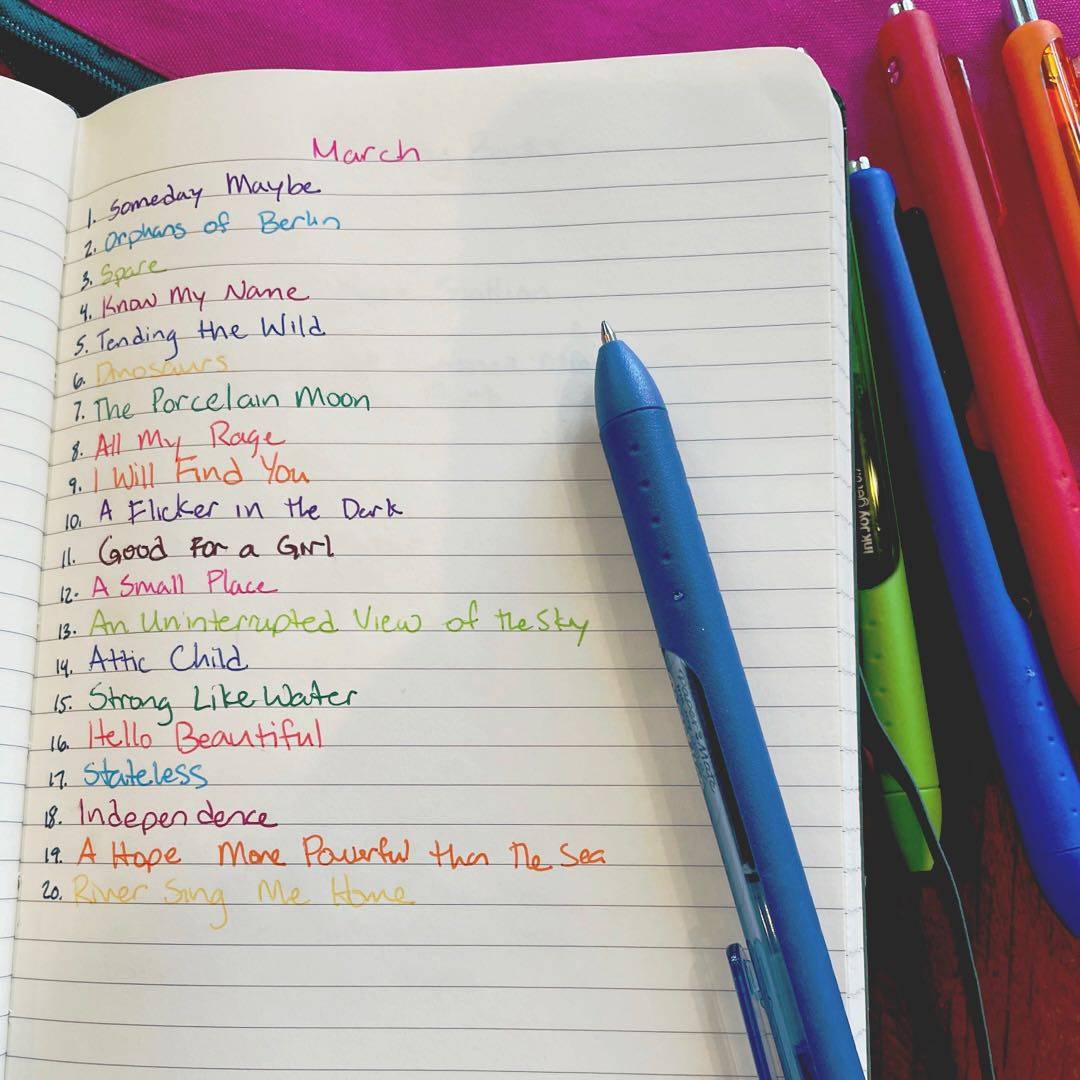 March
1. Someday Maybe
2. Orphans of Berlin
3. Spare
4. Know My Name
5. Tending the Wild
6. Dinosaurs
7. The Porcelain Moon
8. All My Rage
9. I Will Find You
10. A Flicker in the Dark
11. Good For a Girl
12. A Small Place
13. An Uninterrupted View of the Sky
14. Attic Child
15. Strong Like Water
16. Hello Beautiful
17. Stateless
18. Independence
19. A Hope More Powerful than the Sea
20. River Sing Me Home
Paper:Mate
InkJoy gel